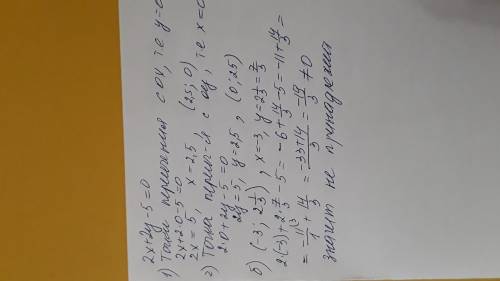 2x+2y-5=0
1) Точка пересечения с ox, т.е y=0
2x+2·0-5=0
2x=5, x=2,5 (2,5; 0)
2) Точка перес-я с oy, т.е x=0
2·0+2y-5=0
2y=5, y=2,5, (0; 2,5)
б) (-3; 2 1/3), x=-3, y=2 1/3=7/3
2·(-3)+2·7/3-5=-6+14/3-5=-11+14/3=
=-11/1+14/3=(-33+14)/3=-19/3≠0
значит не принадлежит